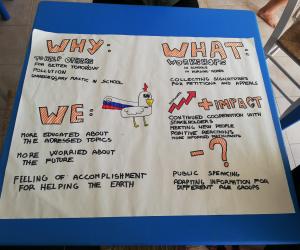 WHY:
TO HELP OTHERS
FOR BETTER TOMORROW
POLLUTION
PLASTIC IN SCHOOL
WHAT:
WORKSHOPS
IN SCHOOLS
IN NURSING HOMES
COLLECTING SIGNATURES
FOR PETITIONS AND APPEALS
WE:
MORE EDUCATED ABOUT
THE ADRESSED TOPICS
MORE WORRIED ABOUT
THE FUTURE
FEELING OF ACCOMPLISHMENT
FOR HELPING THE EARTH
+ IMPACT
CONTINUED COOPERATION WITH
STAKEHOLDERS
MEETING NEW PEOPLE
POSITIVE REACTIONS
MORE INFORMED PARTICIPANTS
- ?
PUBLIC SPEAKING
ADAPTING INFORMATION FOR
DIFFERENT AGE GROUPS